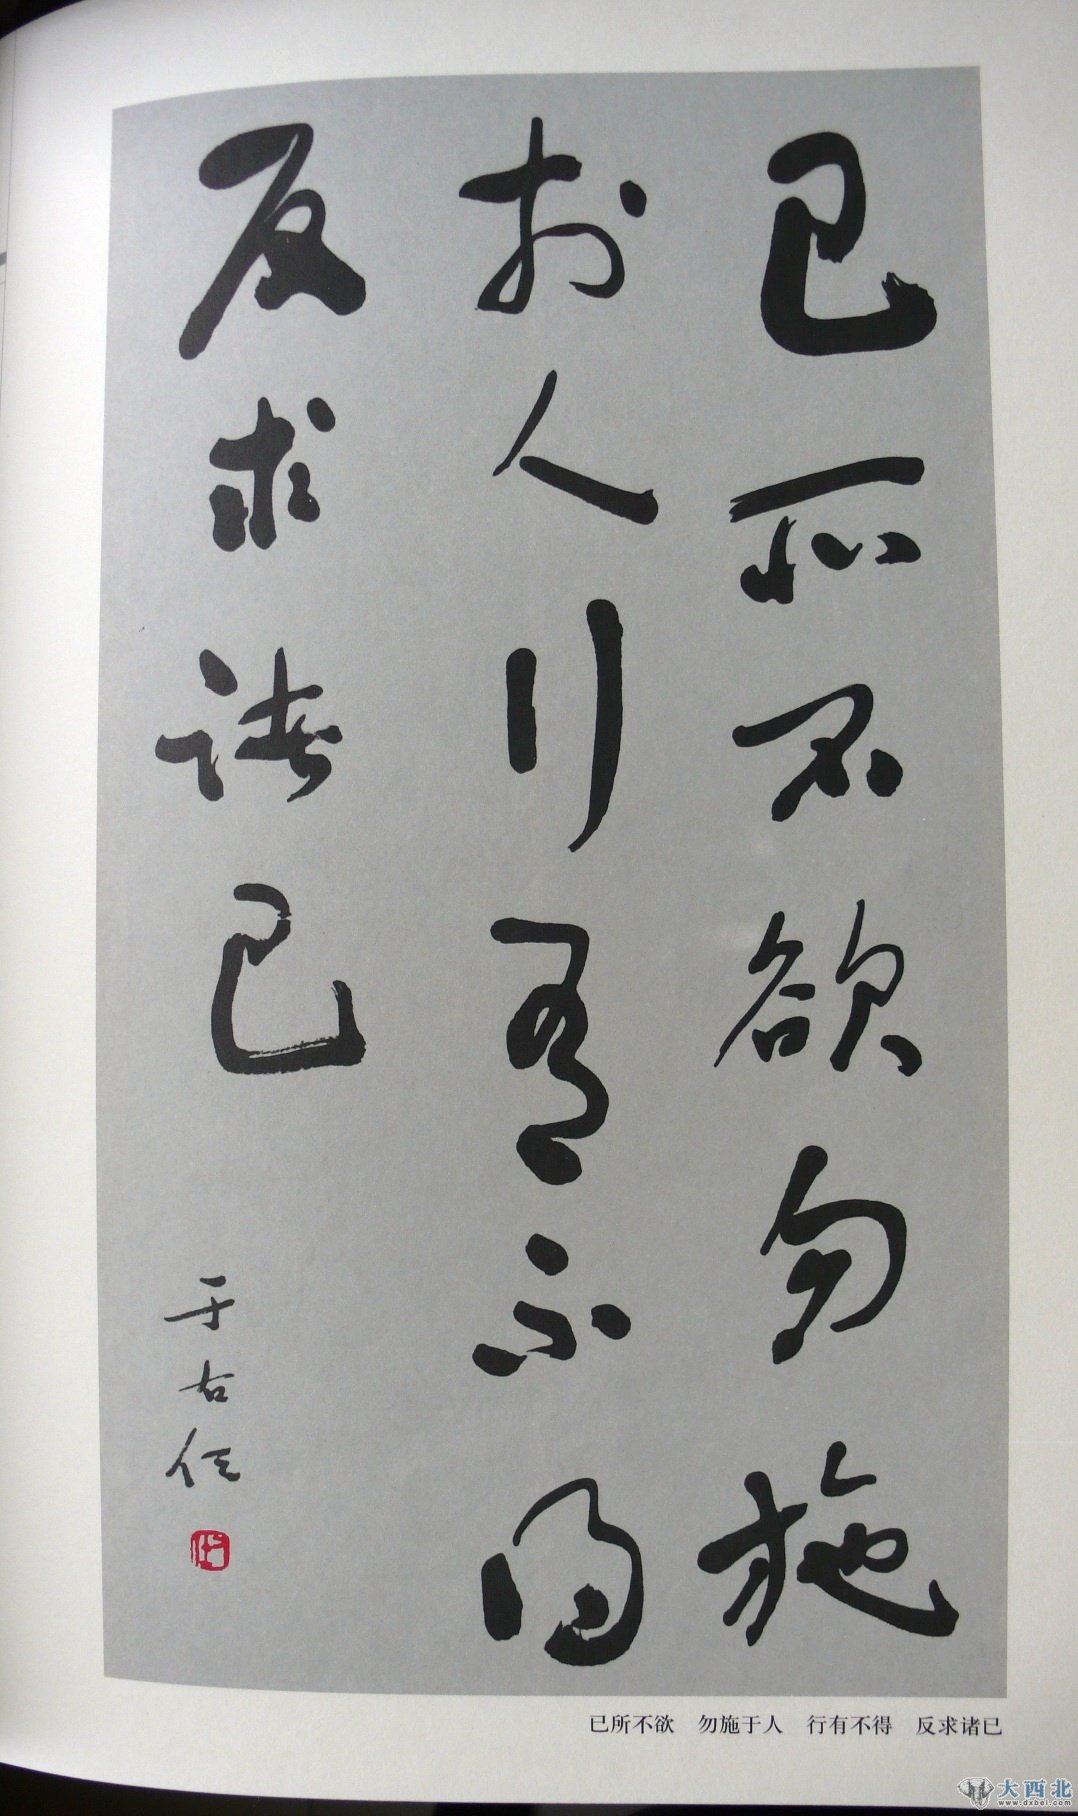 己所不欲勿施
於人行有不得
反求諸己
于右任
己所不欲　勿施于人　行有不得　反求诸己
大西北
www.dxbei.com